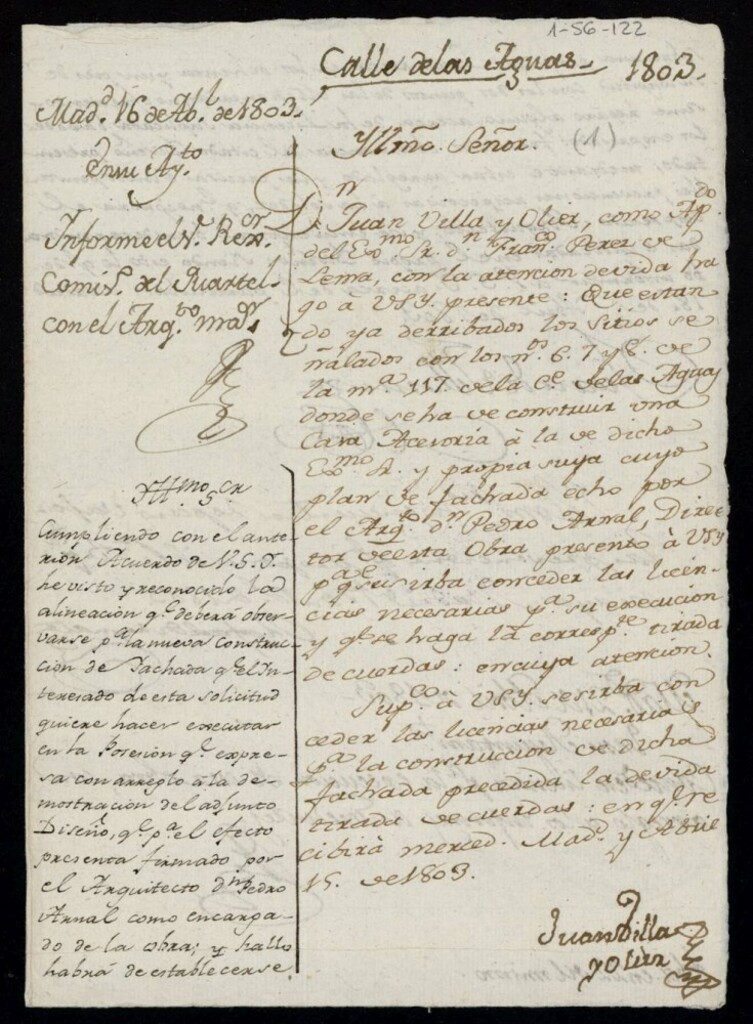 1-56-122
Calle de las Aguas. 1803.
Mad.d 16 de Ab.l de 1803.
En su Ay.to
Informe el S.r Rex.or
Comis.o del Quartel
con el Arq.to ma.or
Yll.mo Señor.
(1)
D.n Juan Villa y Olier, como Ap.do
del Ex.mo Sr. d.n Fran.co Perez de
Lema, con la atencion devida ha
go à VSY. presente: Que estan
do ya derribados los sitios se
ñalados con los n.os 6. 7 y 8. de
la m.a 117. de la C.e de las Aguas
donde se ha de construir una
Casa Acesoria à la de dicho
Ex.mo Sr. y propia suya cuyo
plan de fachada echo por
el Arq.to d.n Pedro Arnal, Direc
tor de esta Obra presento à VSY
p.a q.e se sirba conceder las licen-
cias necesarias p.a su execucion
y q.e se haga la corresp.te tirada
de cuerdas: en cuya atencion.
Sup.co à VSY. se sirba con
ceder las licencias necesarias
p.a la construccion de dicha
fachada precedida la devida
tirada de cuerdas: en q.e re
cibirà merced. Mad.d y Abril
15. de 1803.
Juan Villa
y Olier
Yll.mo S.or
Cumpliendo con el ante-
rior Acuerdo de V.S.I.
he visto y reconocido la
alineación q.e deberá obser-
varse p.a la nueva construc-
ción de Fachada q.e el In-
teresado de esta solicitud
quiere hacer executar
en la Posesión q.e expre-
sa con arreglo á la de-
mostración del adjunto
Diseño, q.e p.a el efecto
presenta firmado por
el Arquitecto d.n Pedro
Arnal como encarga-
do de la obra; y hallo
habrá de establecerse